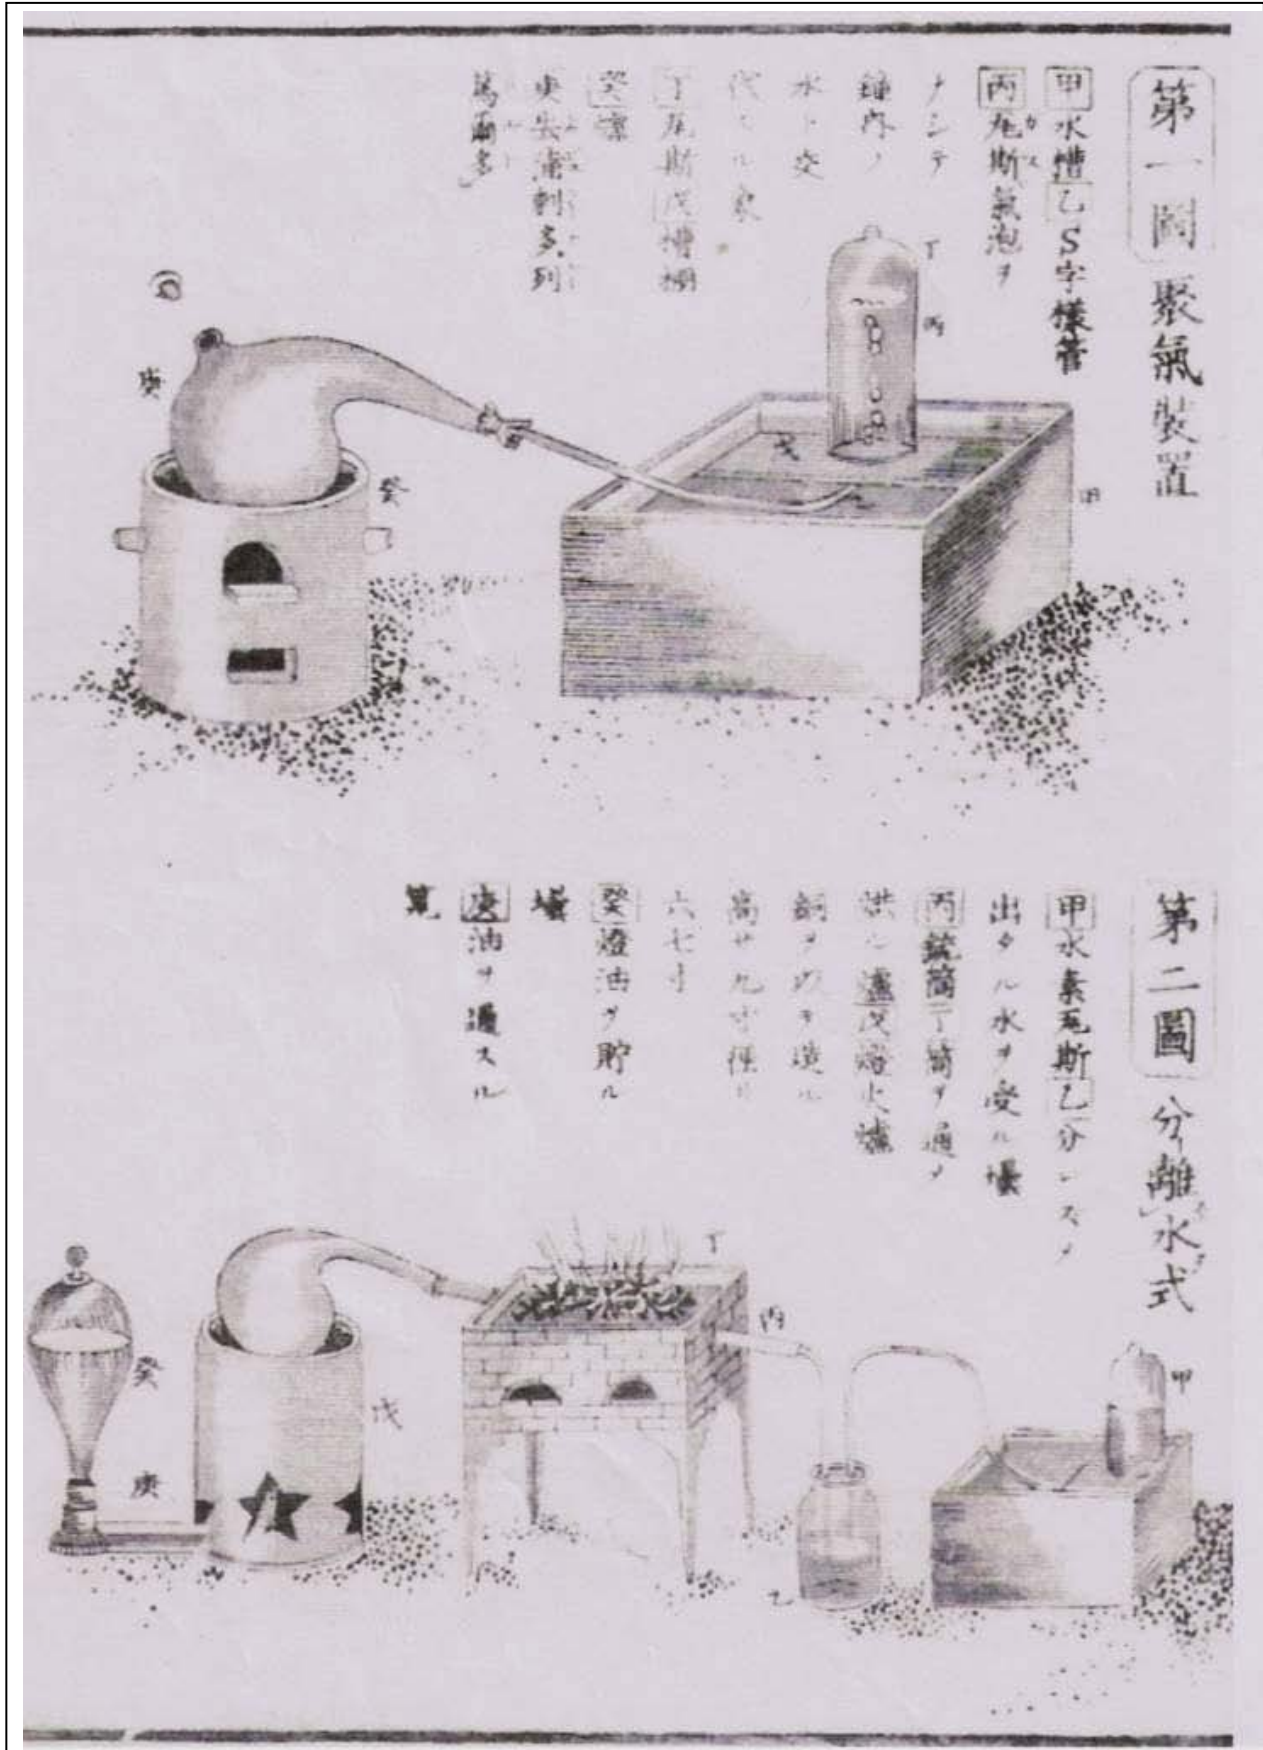 第一圖 聚氣裝置
甲水槽乙S字樣管
丙瓦斯氣泡ヲ
ナシテ
鐘內ノ
水ト交
代スル象
丁瓦斯戊槽棚
癸
庚
篤爾多
丁
丙
戊
甲
癸
庚
第二圖 分離水式
甲水素瓦斯乙分レスメ
出タル水ヲ受ル壜
丙銃筒丁筒ヲ通メ
烘ル爐戊燈火爐
銅ヲ以テ造ル
高サ九寸徑リ
六七寸
癸燈油ヲ貯ル
壜
庚油ヲ通スル
筧
甲
丁
丙
乙
戊
癸
庚